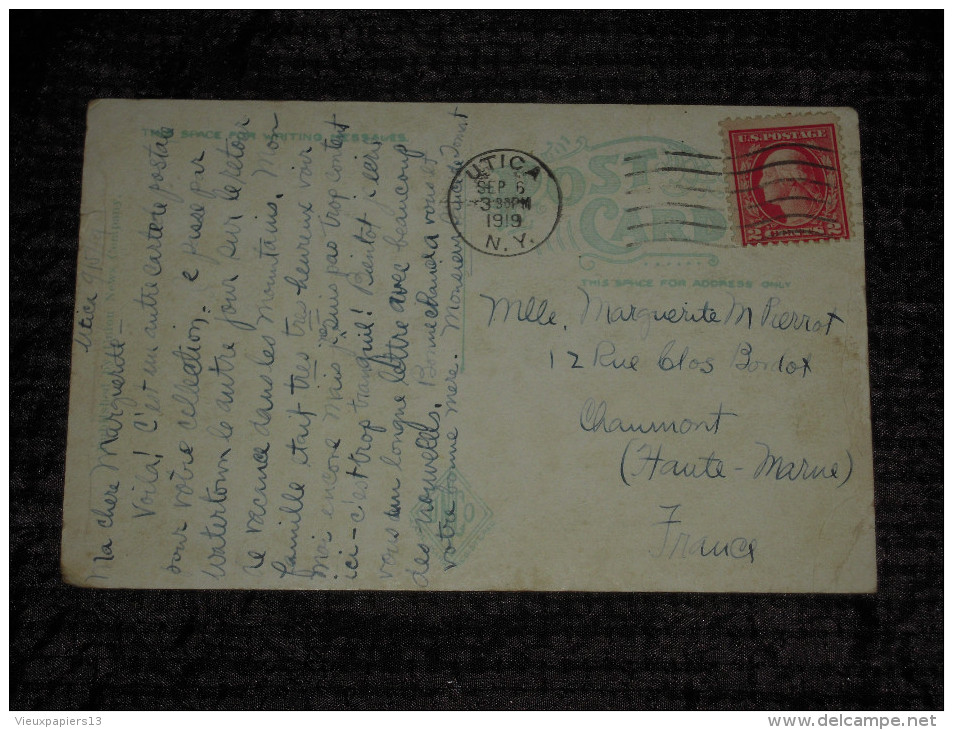 THIS SPACE FOR WRITING MESSAGES
Utica
Ma chere Marguerite—
Voila! C'est un autre carte postale
pour votre collection. Je passe par
Watertown le autre jour sur le retour
de vacance dans les Mountains. Mon
famille etait tres tres heureux voir
moi encore mais je suis pas trop content
ici - c'est trop tranquil! Bientot j'ecris
vous un longue lettre avec beaucoup
des nouvells. Bonne chance a vous et
votre bonne mere. Monsieur
UTICA
SEP 6
3:30PM
1919
N.Y.
POST
CARD
THIS SPACE FOR ADDRESS ONLY
U.S. POSTAGE
2 CENTS 2
Mlle. Marguerite M Pierrot
12 Rue Clos Bordot
Chaumont
(Haute-Marne)
France
Vieuxpapiers13
www.delcampe.net